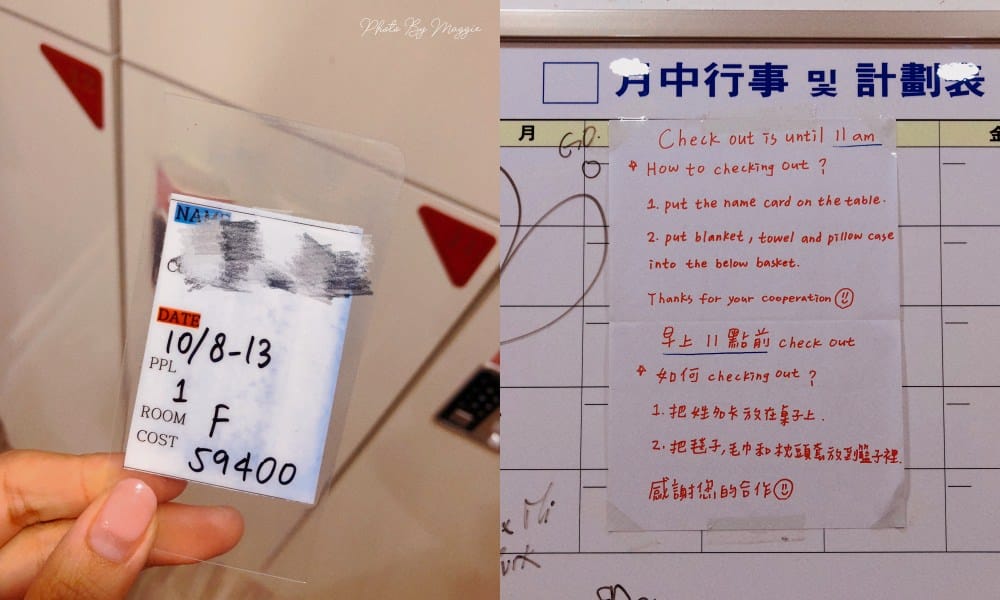 Photo By Maggie
NAME
DATE
10/8-13
PPL
1
ROOM F
COST
59400
月中行事 및 計劃表
月
金
Check out is until 11 am
How to checking out ?
1. put the name card on the table.
2. put blanket, towel and pillow case
into the below basket.
Thanks for your cooperation
早上 11 點前 check out
如何 checking out ?
1. 把姓名卡放在桌子上.
2. 把毯子,毛巾和枕頭套放到籃子裡.
感謝您的合作